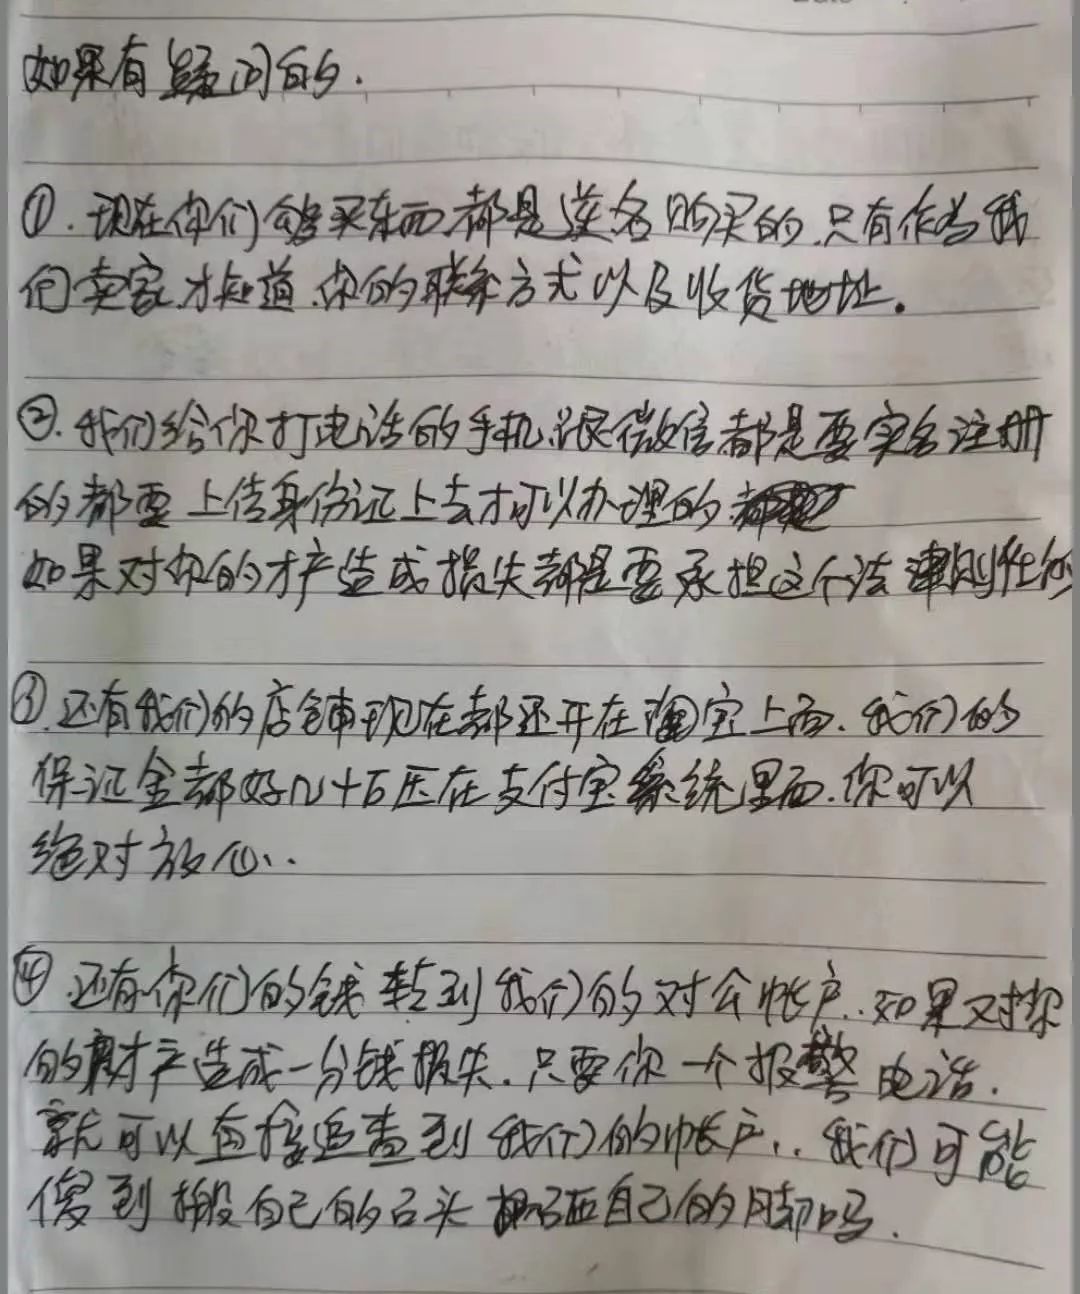 如果有疑问的.
①.现在你们够买东西都是实名购买的.只有作为我
们卖家才知道.你的联系方式以及收货地址。
②.我们给你打电话的手机跟微信都是要实名注册
的都要上传身份证上去才可以办理的
如果对你的才产造成损失都是要承担这个法律则任的
③.还有我们的店铺现在都还开在淘宝上面.我们的
保证金都好几十万压在支付宝系统里面.你可以
绝对放心..
④.还有你们的钱转到我们的对公帐户..如果对你
的财产造成一分钱损失.只要你一个报警电话.
就可以直接追查到我们的帐户..我们可能
傻到搬自己的石头砸自己的脚吗.